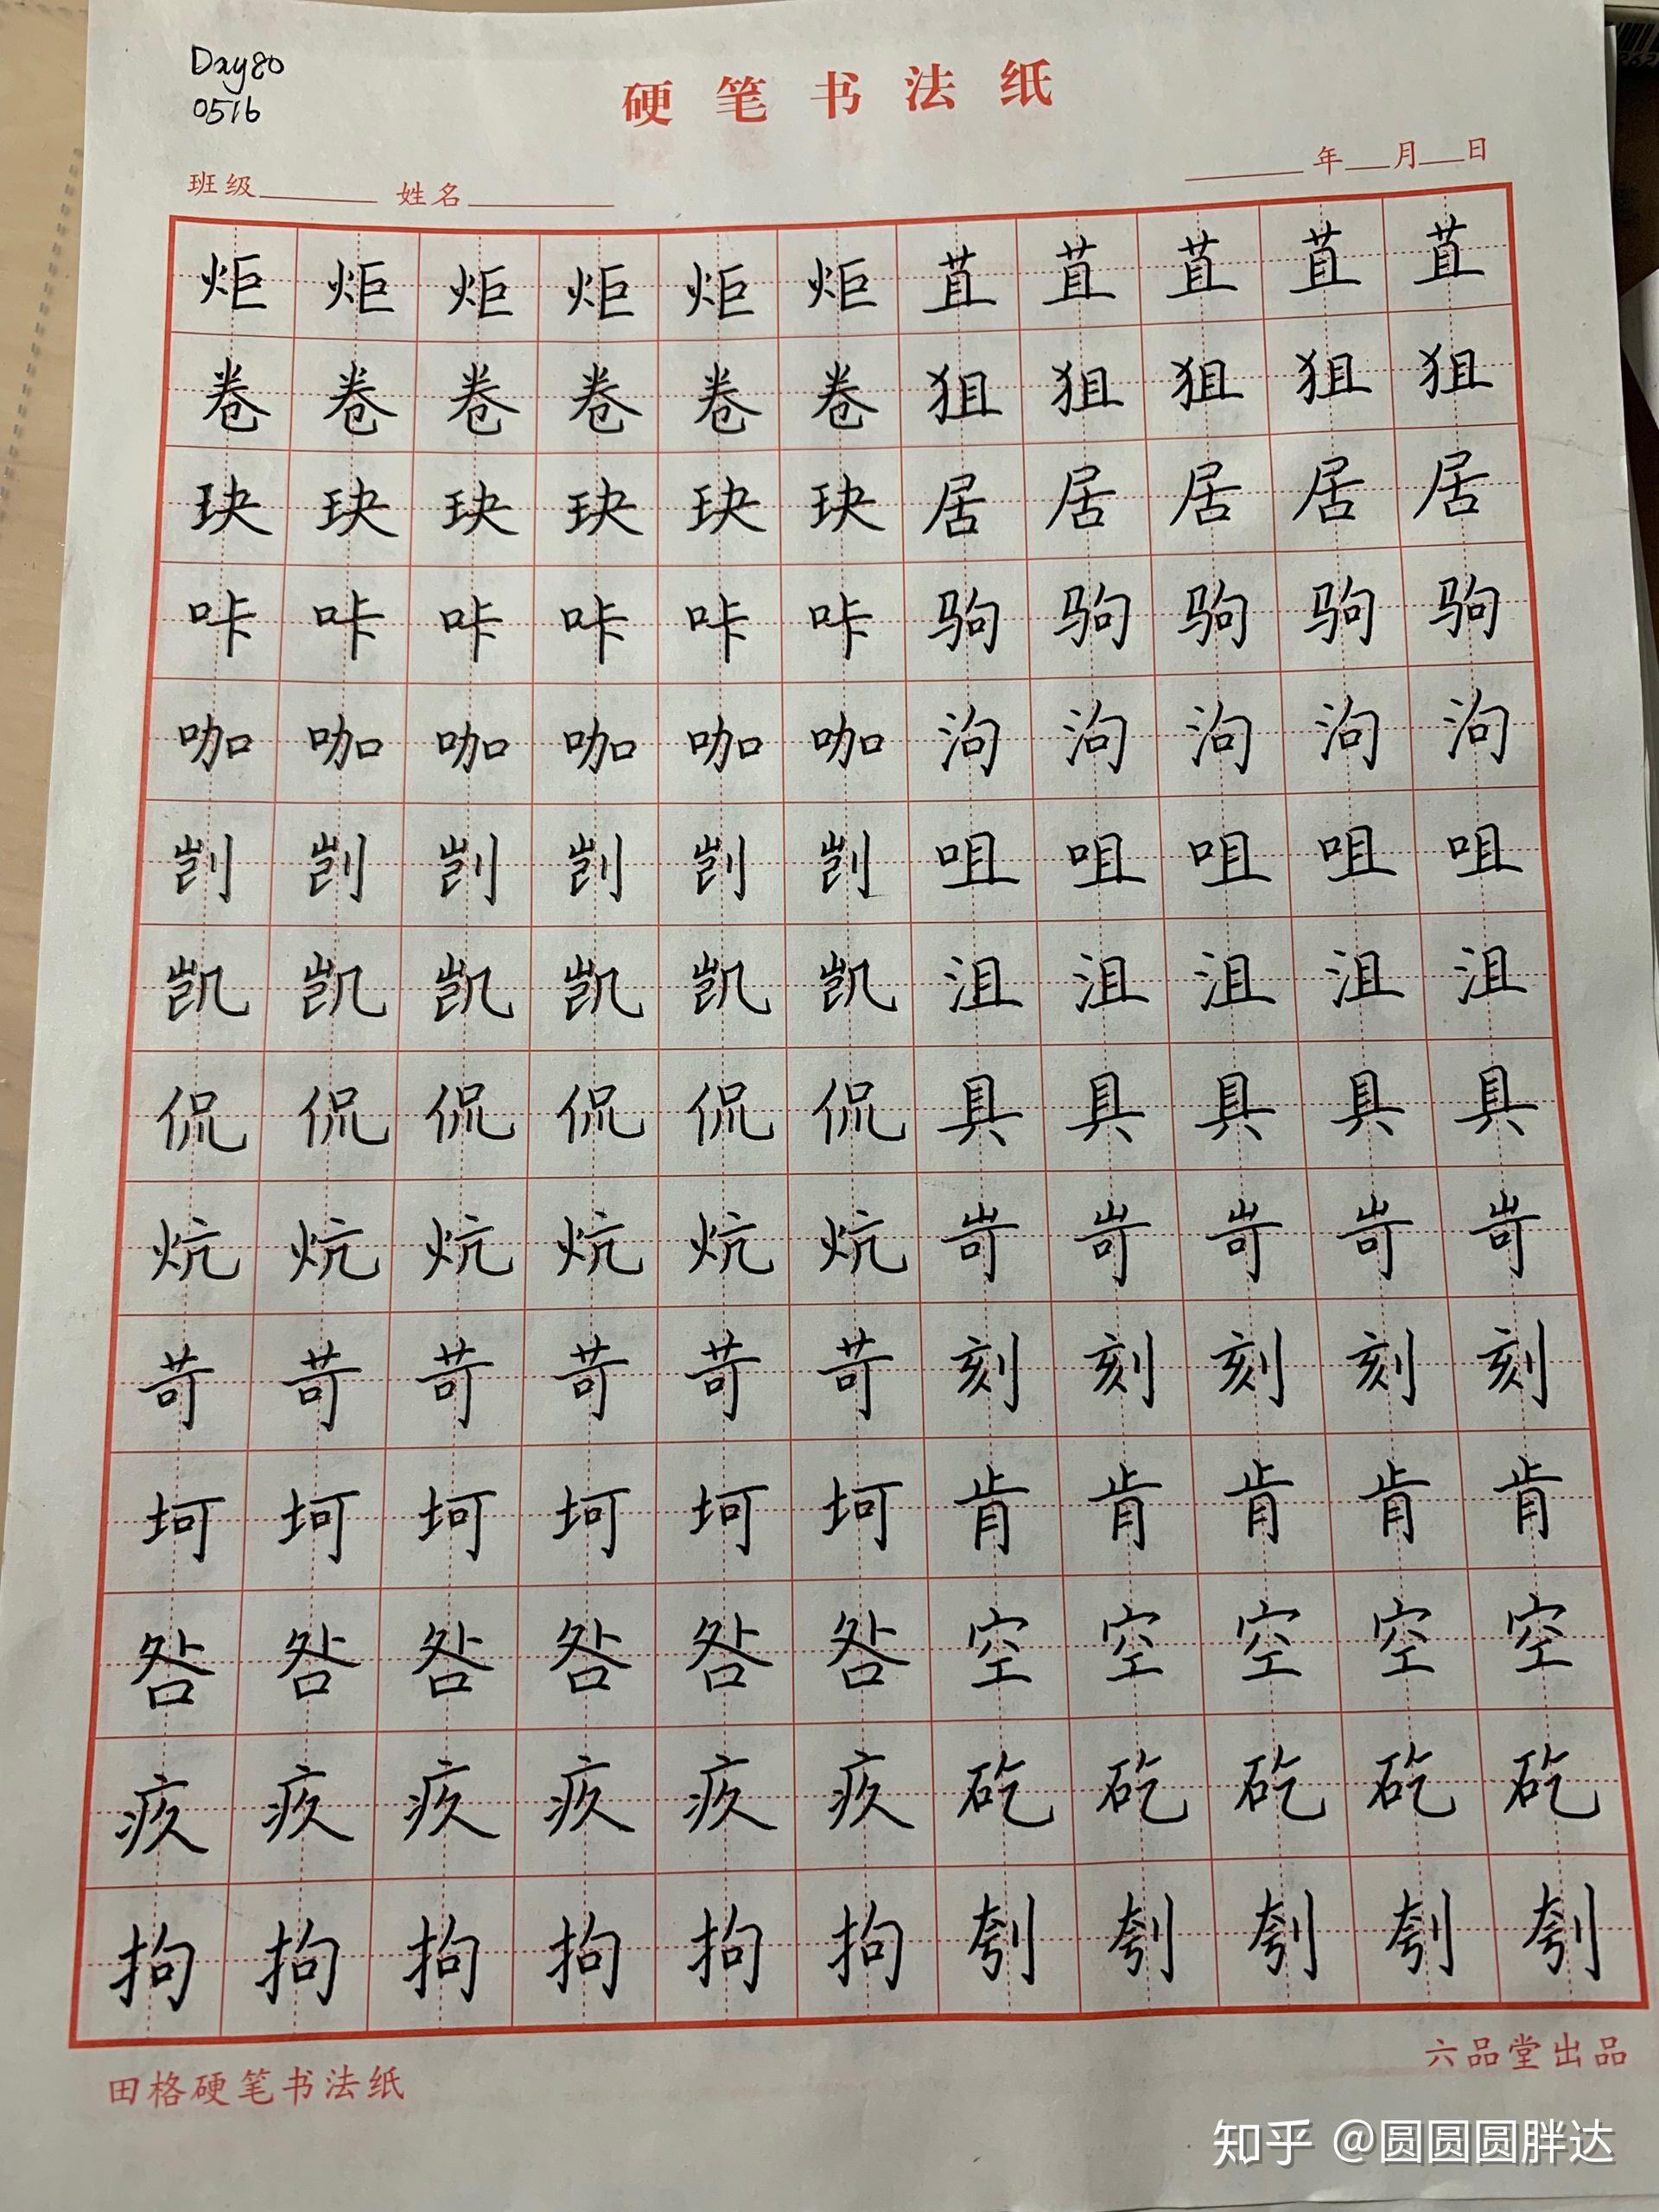 Day80
0516
硬笔书法纸
班级 姓名 年 月 日
炬炬炬炬炬炬苴苴苴苴苴
卷卷卷卷卷卷狙狙狙狙狙
玦玦玦玦玦玦居居居居居
咔咔咔咔咔咔驹驹驹驹驹
咖咖咖咖咖咖泃泃泃泃泃
剀剀剀剀剀剀咀咀咀咀咀
凯凯凯凯凯凯沮沮沮沮沮
侃侃侃侃侃侃具具具具具
炕炕炕炕炕炕岢岢岢岢岢
苛苛苛苛苛苛刻刻刻刻刻
坷坷坷坷坷坷肯肯肯肯肯
咎咎咎咎咎咎空空空空空
疚疚疚疚疚疚矻矻矻矻矻
拘拘拘拘拘拘刳刳刳刳刳
田格硬笔书法纸 六品堂出品
知乎 @圆圆圆胖达